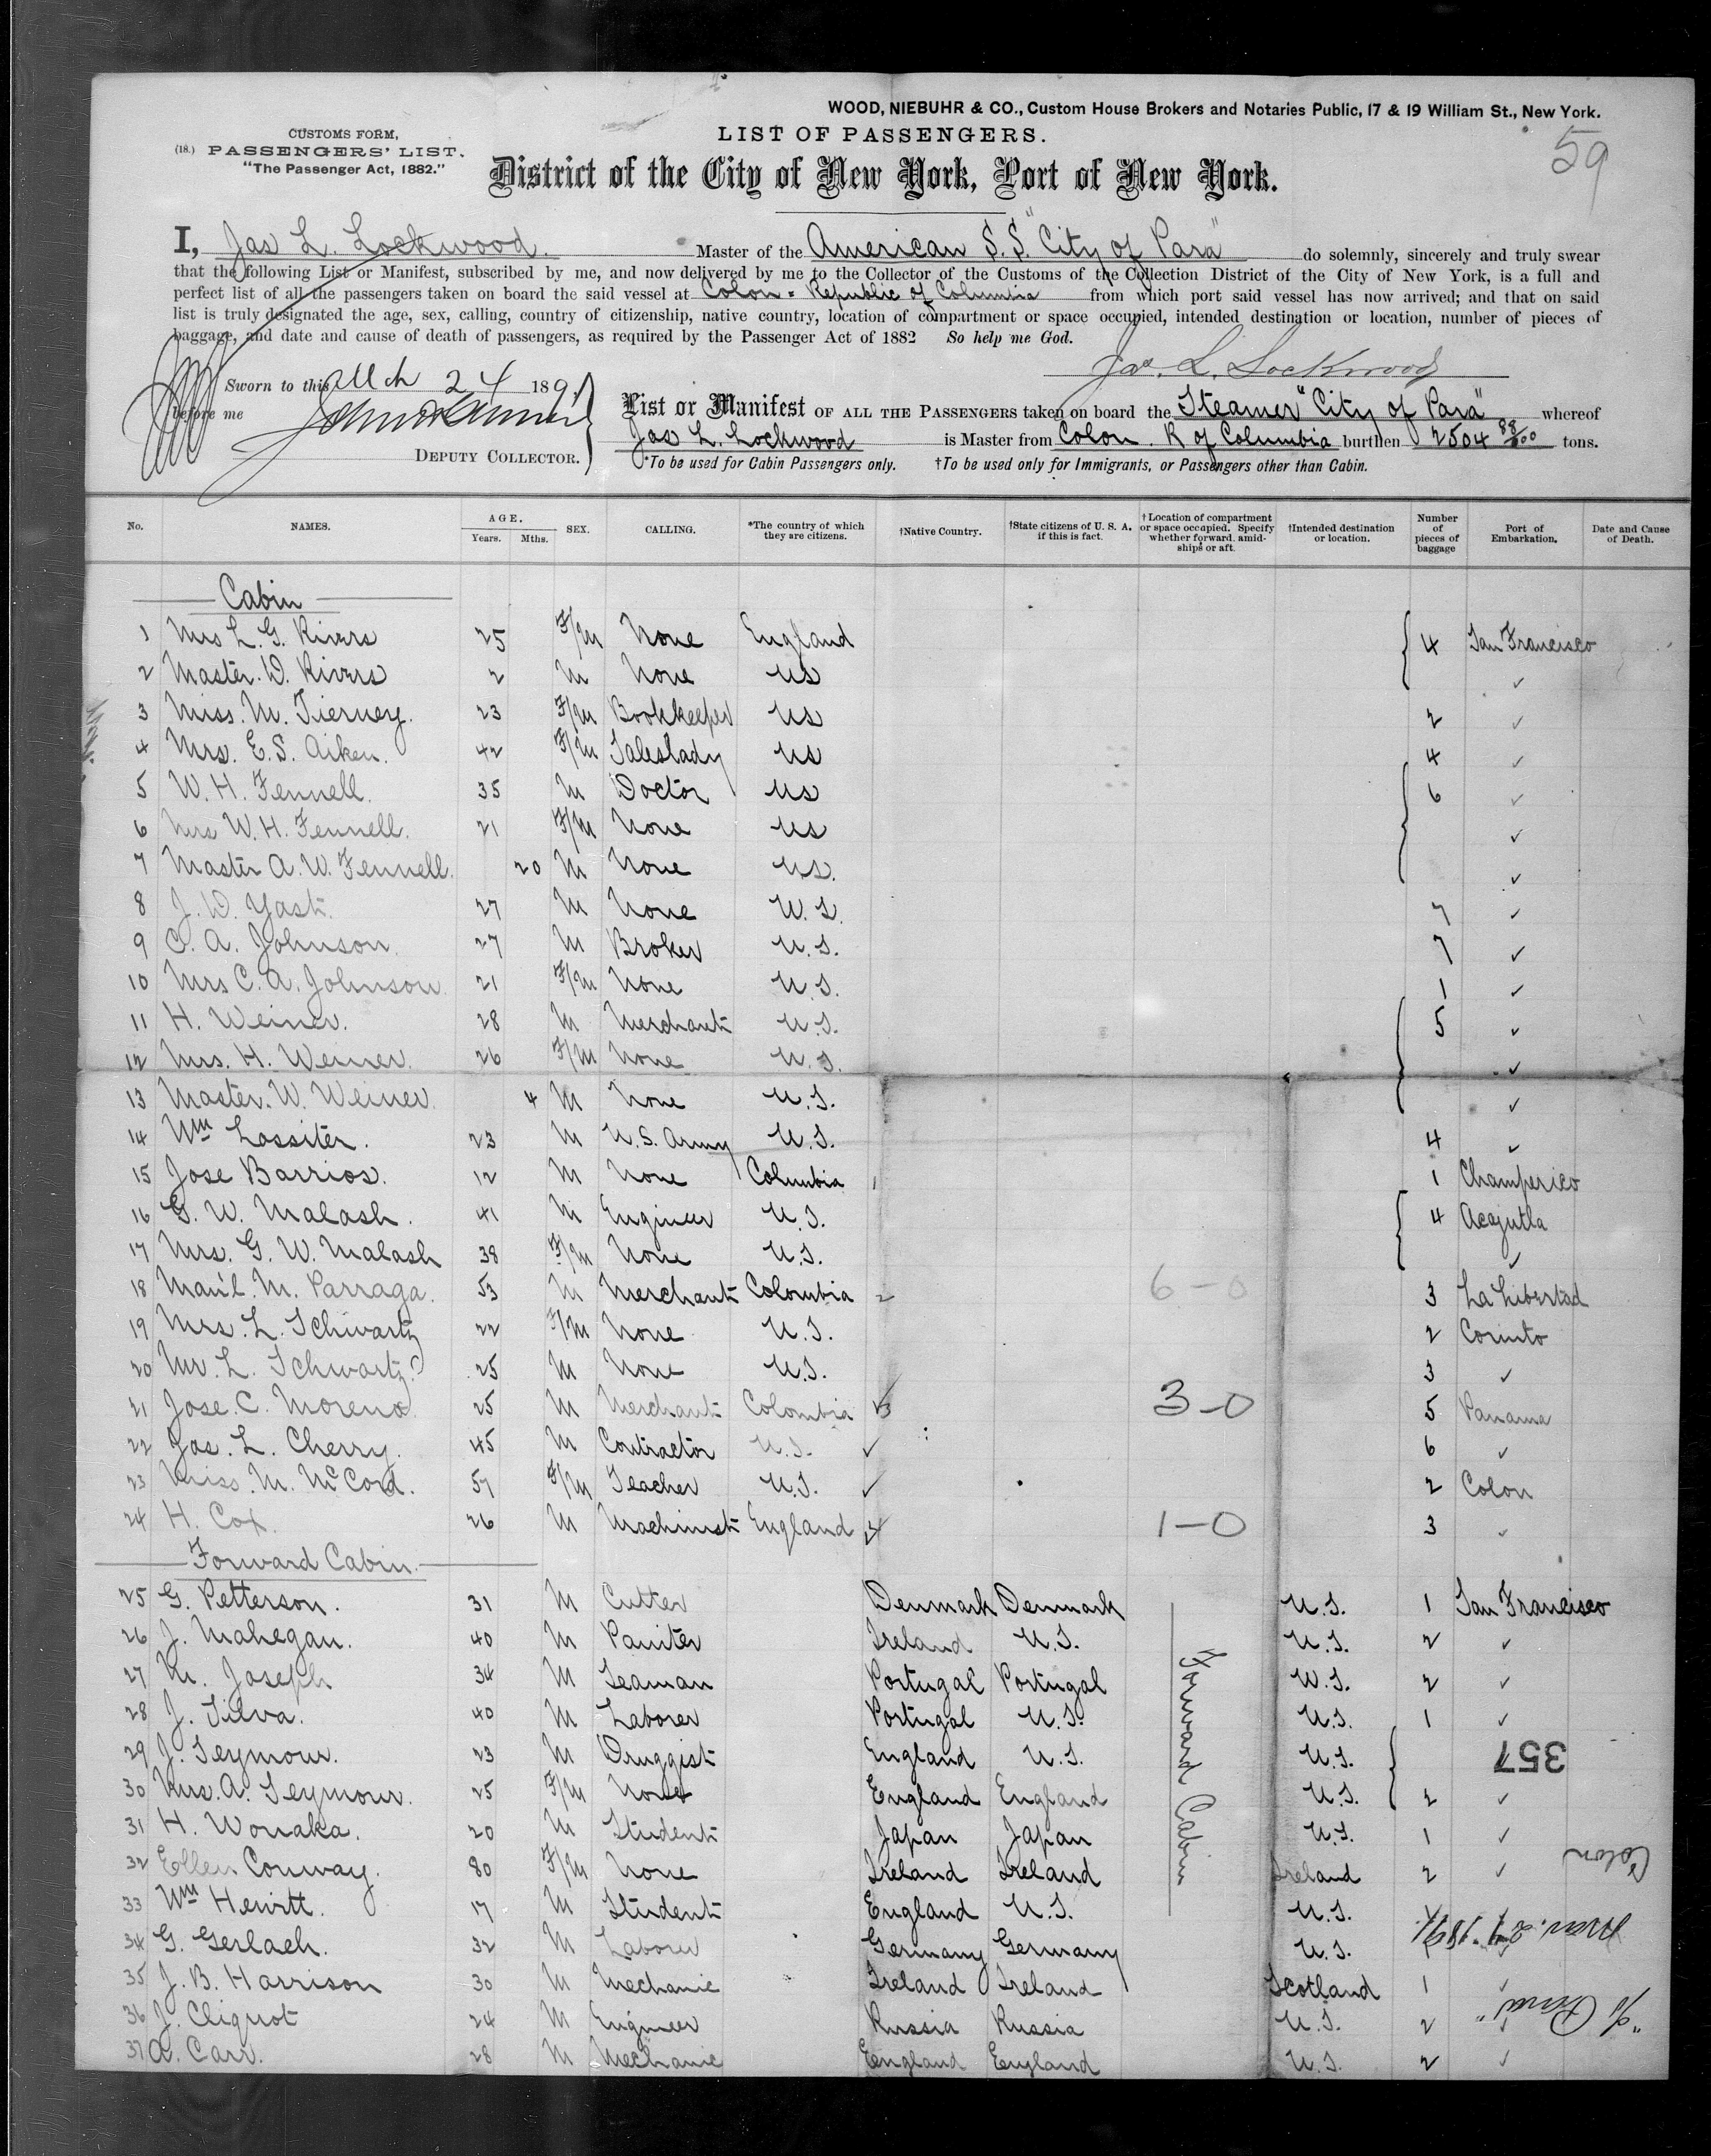 WOOD, NIEBUHR & CO., Custom House Brokers and Notaries Public, 17 & 19 William St., New York.
CUSTOMS FORM,
(18.) PASSENGERS' LIST.
"The Passenger Act, 1882."
LIST OF PASSENGERS.
59
District of the City of New York, Port of New York.
I, Jas L. Lockwood Master of the American S.S. "City of Para" do solemnly, sincerely and truly swear
that the following List or Manifest, subscribed by me, and now delivered by me to the Collector of the Customs of the Collection District of the City of New York, is a full and
perfect list of all the passengers taken on board the said vessel at Colon - Republic of Columbia from which port said vessel has now arrived; and that on said
list is truly designated the age, sex, calling, country of citizenship, native country, location of compartment or space occupied, intended destination or location, number of pieces of
baggage, and date and cause of death of passengers, as required by the Passenger Act of 1882 So help me God.
Jas. L. Lockwood
Sworn to this Mch 24 1891
before me
DEPUTY COLLECTOR.
List or Manifest OF ALL THE PASSENGERS taken on board the Steamer "City of Para" whereof
Jas L. Lockwood is Master from Colon. R of Columbia burthen 2504 88/100 tons.
*To be used for Cabin Passengers only. †To be used only for Immigrants, or Passengers other than Cabin.
No. NAMES. AGE. Years. Mths. SEX. CALLING. *The country of which they are citizens. †Native Country. †State citizens of U. S. A. if this is fact. †Location of compartment or space occupied. Specify whether forward, amidships or aft. †Intended destination or location. Number of pieces of baggage Port of Embarkation. Date and Cause of Death.
Cabin
1 Mrs L. G. Rivers 25 F/M None England 4 San Francisco
2 Master. W. Rivers 2 M None US ✓
3 Miss. M. Tierney. 23 F/M Bookkeeper US 2 ✓
4 Mrs. E. S. Aiken. 42 F/M Saleslady US 4 ✓
5 W. H. Fennell. 35 M Doctor US 6 ✓
6 Mrs W. H. Fennell. 21 F/M None US ✓
7 Master A. W. Fennell. 20 M None US. ✓
8 J. W. 27 M None U. S. 7 ✓
9 C. A. Johnson. 27 M Broker U. S. 7 ✓
10 Mrs C. A. Johnson. 21 F/M None U. S. 1 ✓
11 H. Weiner. 28 M Merchant U. S. 5 ✓
12 Mrs. H. Weiner. 26 F/M None U. S. ✓
13 Master. W. Weiner. 4 M None U. S. ✓
14 Wm Lossiter. 23 M U. S. Army U. S. 4 ✓
15 Jose Barrios. 12 M None Columbia 1 1 Champerico
16 G. W. Malash. 41 M Engineer U. S. 4 Acajutla
17 Mrs. G. W. Malash 38 F/M None U. S. ✓
18 Man'l. M. Parraga. 53 M Merchant Colombia 2 6-0 3 La Libertad
19 Mrs. L. Schwartz 22 F/M None U. S. 2 Corinto
20 Mr. L. Schwartz 25 M None U. S. 3 ✓
21 Jose. C. Moreno. 25 M Merchant Colombia 3 3-0 5 Panama
22 Jas. L. Cherry. 45 M Contractor U. S. ✓ 6 ✓
23 Miss. M. McCord. 57 F/M Teacher U. S. ✓ 2 Colon
24 H. Cox. 26 M Machinist England 4 1-0 3 ✓
Forward Cabin.
25 G. Petterson. 31 M Cutter Denmark Denmark U. S. 1 San Francisco
26 J. Mahegan. 40 M Painter Ireland U. S. U. S. 2 ✓
27 M. Joseph 34 M Seaman Portugal Portugal U. S. 2 ✓
28 J. Silva. 40 M Laborer Portugal U. S. U. S. 1 ✓
29 J. Seymour. 23 M Druggist England U. S. U. S. ✓
30 Mrs. A. Seymour. 25 F/M None England England U. S. 2 ✓
31 H. Wonaka. 20 M Student Japan Japan U. S. 1 ✓
32 Ellen Conway. 80 F/M None Ireland Ireland Ireland 2 ✓
33 Wm Hewitt. 17 M Student England U. S. U. S.
34 G. Gerlach. 32 M Laborer Germany Germany U. S.
35 J. B. Harrison 30 M Mechanic Ireland Ireland Scotland 1 ✓
36 J. Cliquot 24 M Engineer Russia Russia U. S. 2 ✓
37 A. Carr. 28 M Mechanic England England U. S. 2 ✓
Forward Cabin
357
Colon